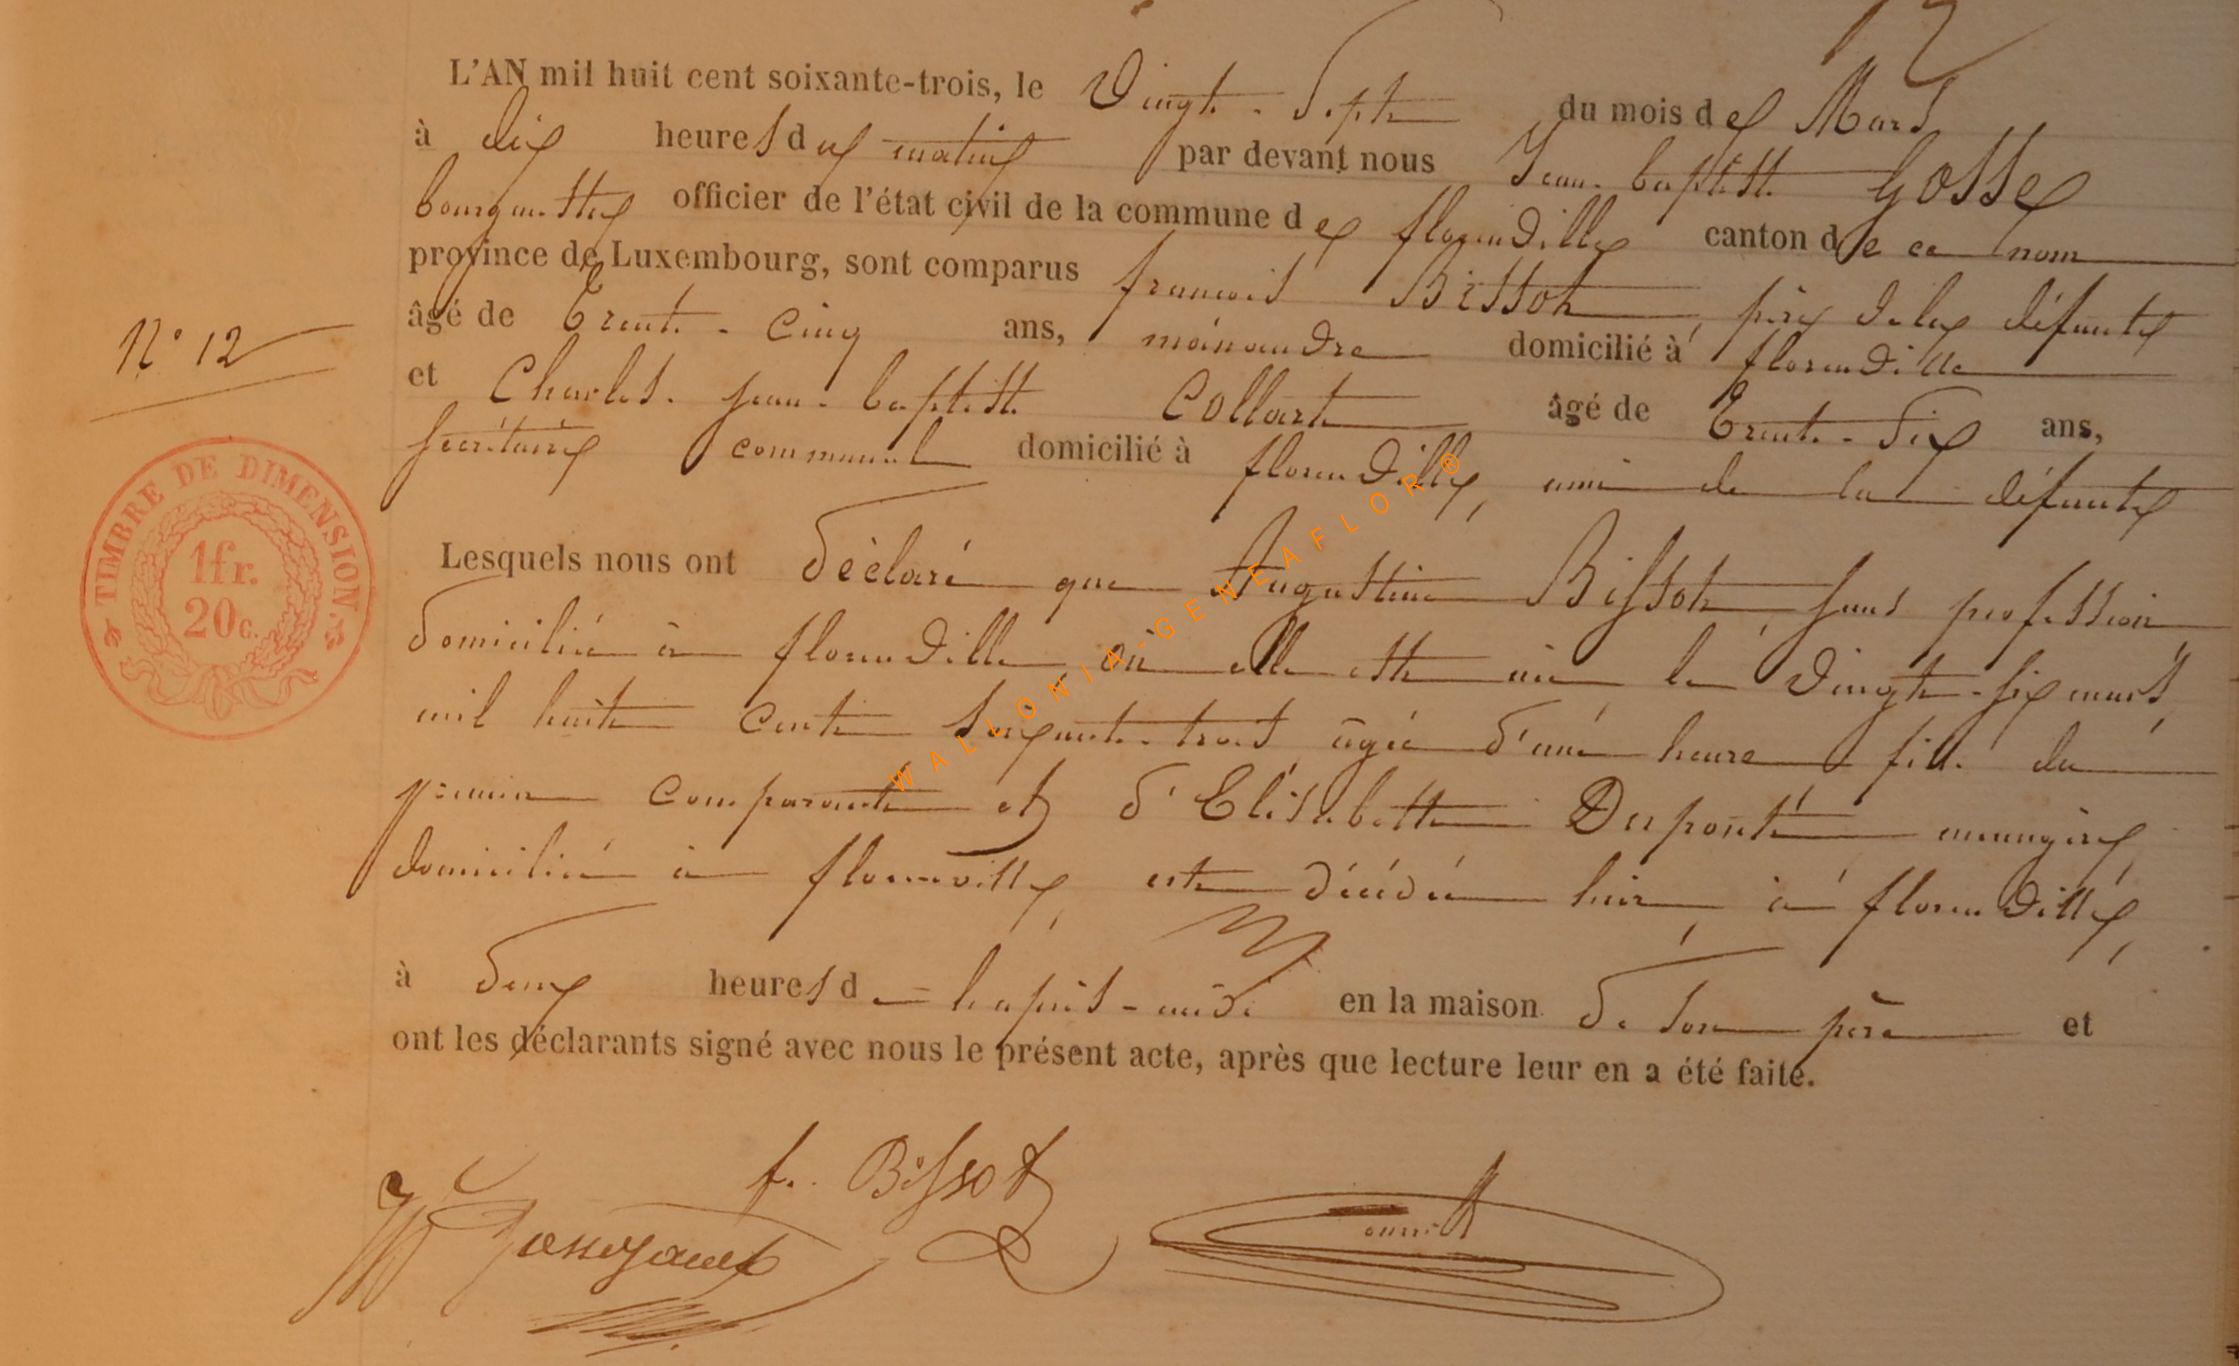 L'AN mil huit cent soixante-trois, le Vingt-Sept du mois de Mars
à dix heures du matin par devant nous Jean-baptiste Gosse
bourgmestre officier de l'état civil de la commune de florenville canton de ce nom
province de Luxembourg, sont comparus françois Bissot, père de la défunte
âgé de Trente-Cinq ans, domicilié à florenville
et Charles-Jean-baptiste Collart âgé de Trente-Six ans,
secrétaire communal domicilié à florenville, ami de la défunte
N° 12
TIMBRE DE DIMENSION
1fr.
20c.
Lesquels nous ont déclaré que Augustine Bissot, sans profession
domiciliée à florenville, où elle est née le Vingt-six mars
mil huit cent soixante-trois, âgée d'une heure fille du
premier comparant et d'Elisabeth Duponté ménagère
domiciliée à florenville, est décédée hier, à florenville,
à deux heures de l'après-midi en la maison de son père et
ont les déclarants signé avec nous le présent acte, après que lecture leur en a été faite.
f. Bissot
WALLONIA-GENEAFLOR®